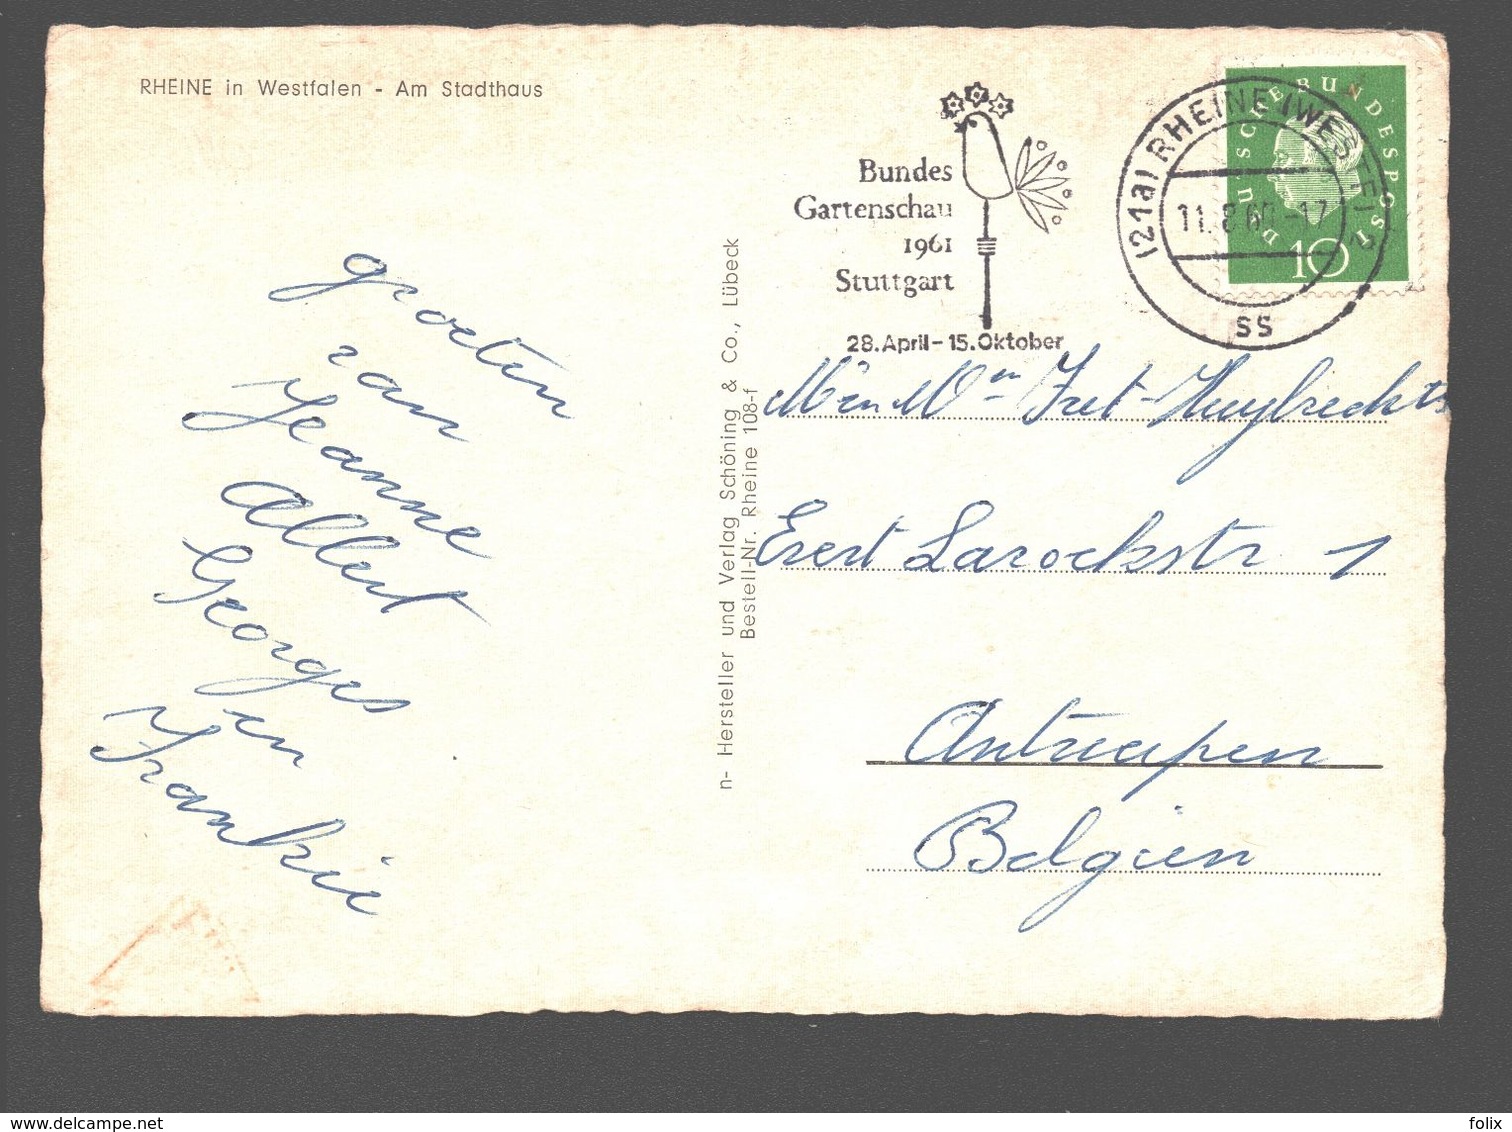 RHEINE in Westfalen - Am Stadthaus
groeten
van
Jeanne
Albert
Georges
en
Frankie
n- Hersteller und Verlag Schöning & Co., Lübeck
Bestell-Nr. Rheine 108-f
Bundes
Gartenschau
1961
Stuttgart
28.April-15.Oktober
(21a) RHEINE (WESTF) 2
11.8.60-17
SS
DEUTSCHE BUNDESPOST
10
M en Mn Fret-Huybrechts
Evert Larockstr 1
Antwerpen
Belgien
www.delcampe.net
folix